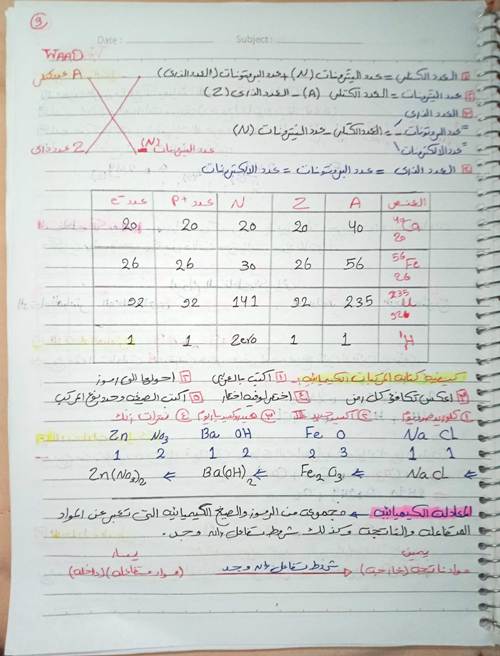 9
Date : Subject :
WAAD
العدد الكتلي = عدد النيترونات (N) + عدد البروتونات (العدد الذري)
عدد النيترونات = العدد الكتلي (A) - العدد الذري (Z)
العدد الذري
عدد البروتونات = العدد الكتلي - عدد النيترونات (N)
عدد الإلكترونات
العدد الذري = عدد البروتونات = عدد الإلكترونات
A عدد كتلي
Z عدد ذري
(N) عدد النيترونات
العنصر A Z N عدد P+ عدد e-
Ca 20 40 20 20 20 20
56 Fe 26 56 26 30 26 26
235 U 92 235 92 141 92 92
1 H 1 1 Zero 1 1
كيفية كتابة المركبات الكيميائية :- ① اكتب بالعربي ② احولها الى رموز
③ اعكس تكافؤ كل رمز ④ اختصر لو فيه اختصار ⑤ اكتب الصيغة
① كلوريد صوديوم ② أكسيد حديد III ③ هيدروكسيد باريوم ④ نترات زنك
Na Cl Fe O Ba OH Zn No3
1 1 3 2 2 1 2 1
NaCl Fe2 O3 Ba(OH)2 Zn(No3)2
المعادلة الكيميائية ← مجموعة من الرموز والصيغ الكيميائية التى تعبر عن المواد
المتفاعلة والناتجة وكذلك شروط التفاعل إن وجد .
يمين يسار
مواد ناتجة (خارجة) شروط تفاعل إن وجد (مواد متفاعلة) (داخلة)